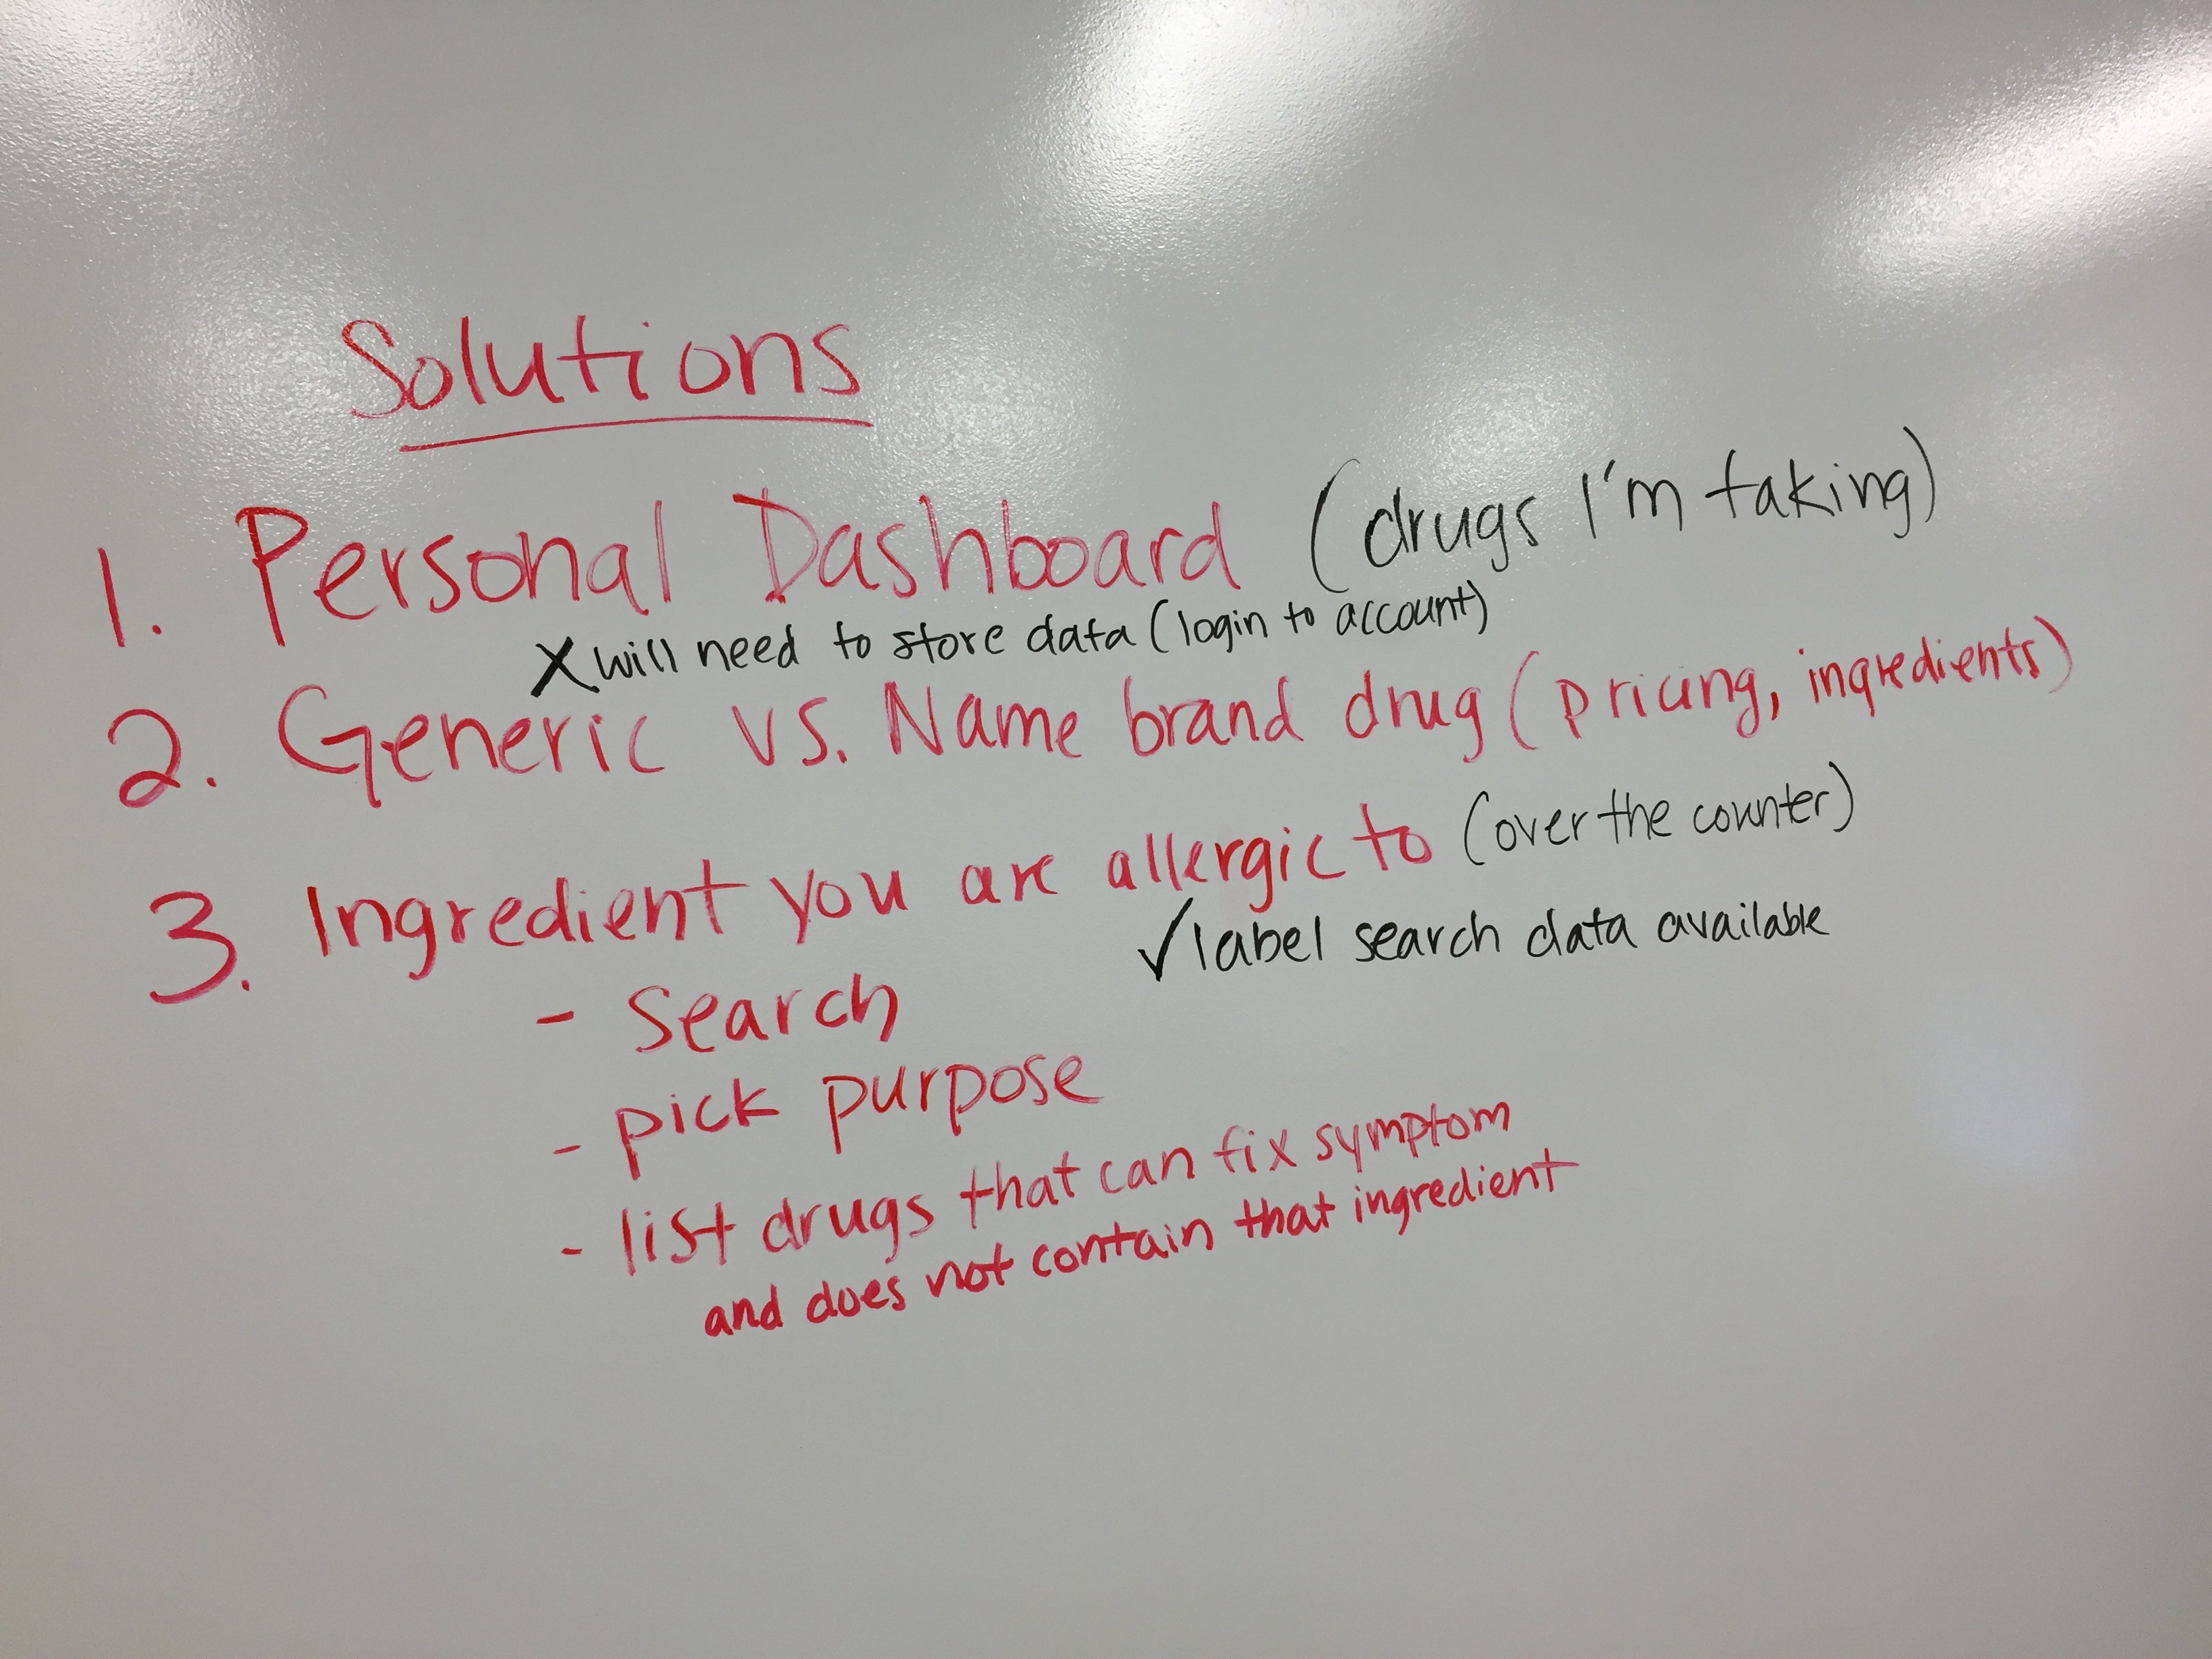 Solutions
1. Personal Dashboard (drugs I'm taking)
X will need to store data (login to account)
2. Generic vs. Name brand drug (pricing, ingredients)
3. Ingredient you are allergic to (over the counter)
✓ label search data available
- Search
- pick purpose
- list drugs that can fix symptom
and does not contain that ingredient